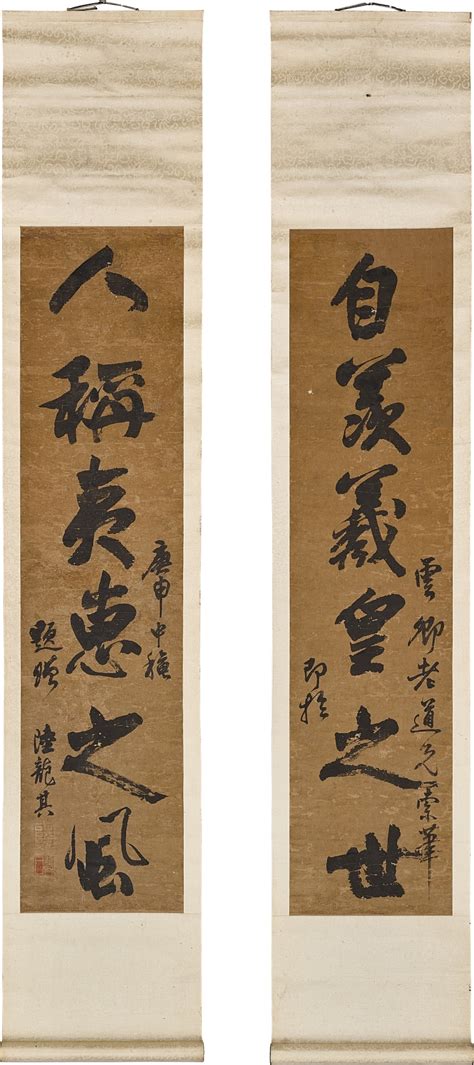 自羨羲皇之世
雲卿老道兄索筆
即於
人稱夷惠之風
庚申中穐
題贈
陸龍其